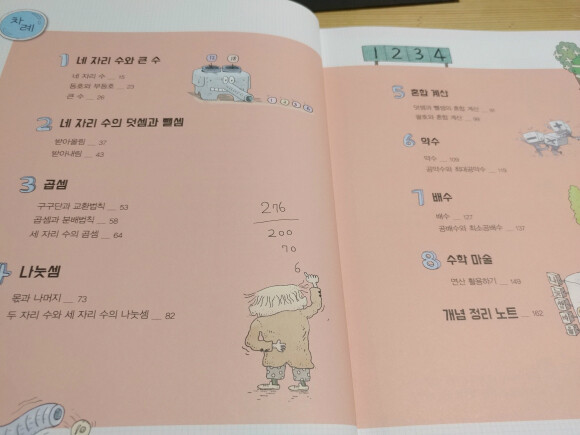 차례
1 네 자리 수와 큰 수
네 자리 수 __ 16
등호와 부등호 __ 23
큰 수 __ 26
2 네 자리 수의 덧셈과 뺄셈
받아올림 __ 37
받아내림 __ 43
3 곱셈
구구단과 교환법칙 __ 53
곱셈과 분배법칙 __ 58
세 자리 수의 곱셈 __ 64
4 나눗셈
몫과 나머지 __ 73
두 자리 수와 세 자리 수의 나눗셈 __ 82
276
200
70
6
1 2 3 4
5 혼합 계산
덧셈과 뺄셈의 혼합 계산 __
괄호와 혼합 계산 __
6 약수
약수 __ 109
공약수와 최대공약수 __
7 배수
배수 __ 127
공배수와 최소공배수 __ 137
8 수학 마술
연산 활용하기 __ 149
개념 정리 노트 __ 162